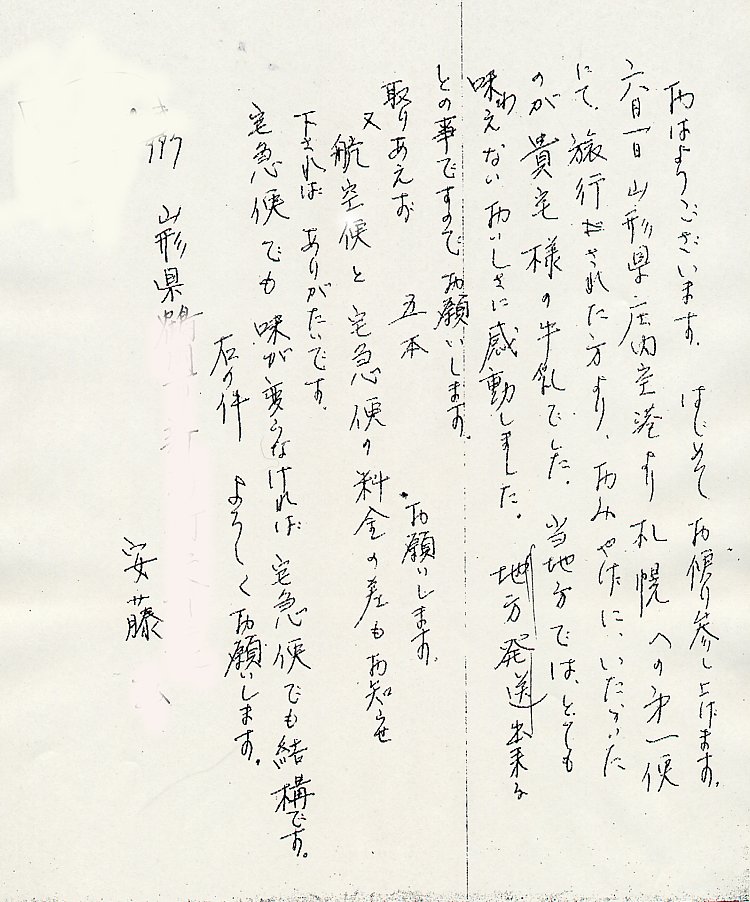 おはようございます。はじめてお便り参し上げます。
六月一日山形県庄内空港より札幌への第一便
にて、旅行だされた方より、おみやげに、いただいた
のが貴宅様の牛乳でした。当地方では、とても
味わえないおいしさに感動しました。地方発送出来る
との事ですのでお願いします。
取りあえず 五本 お願いします。
又航空便と宅急便の料金の差もお知らせ
下さればありがたいです。
宅急便でも味が変らなければ宅急便でも結構です。
右の件よろしくお願いします。
山形県鶴
安藤